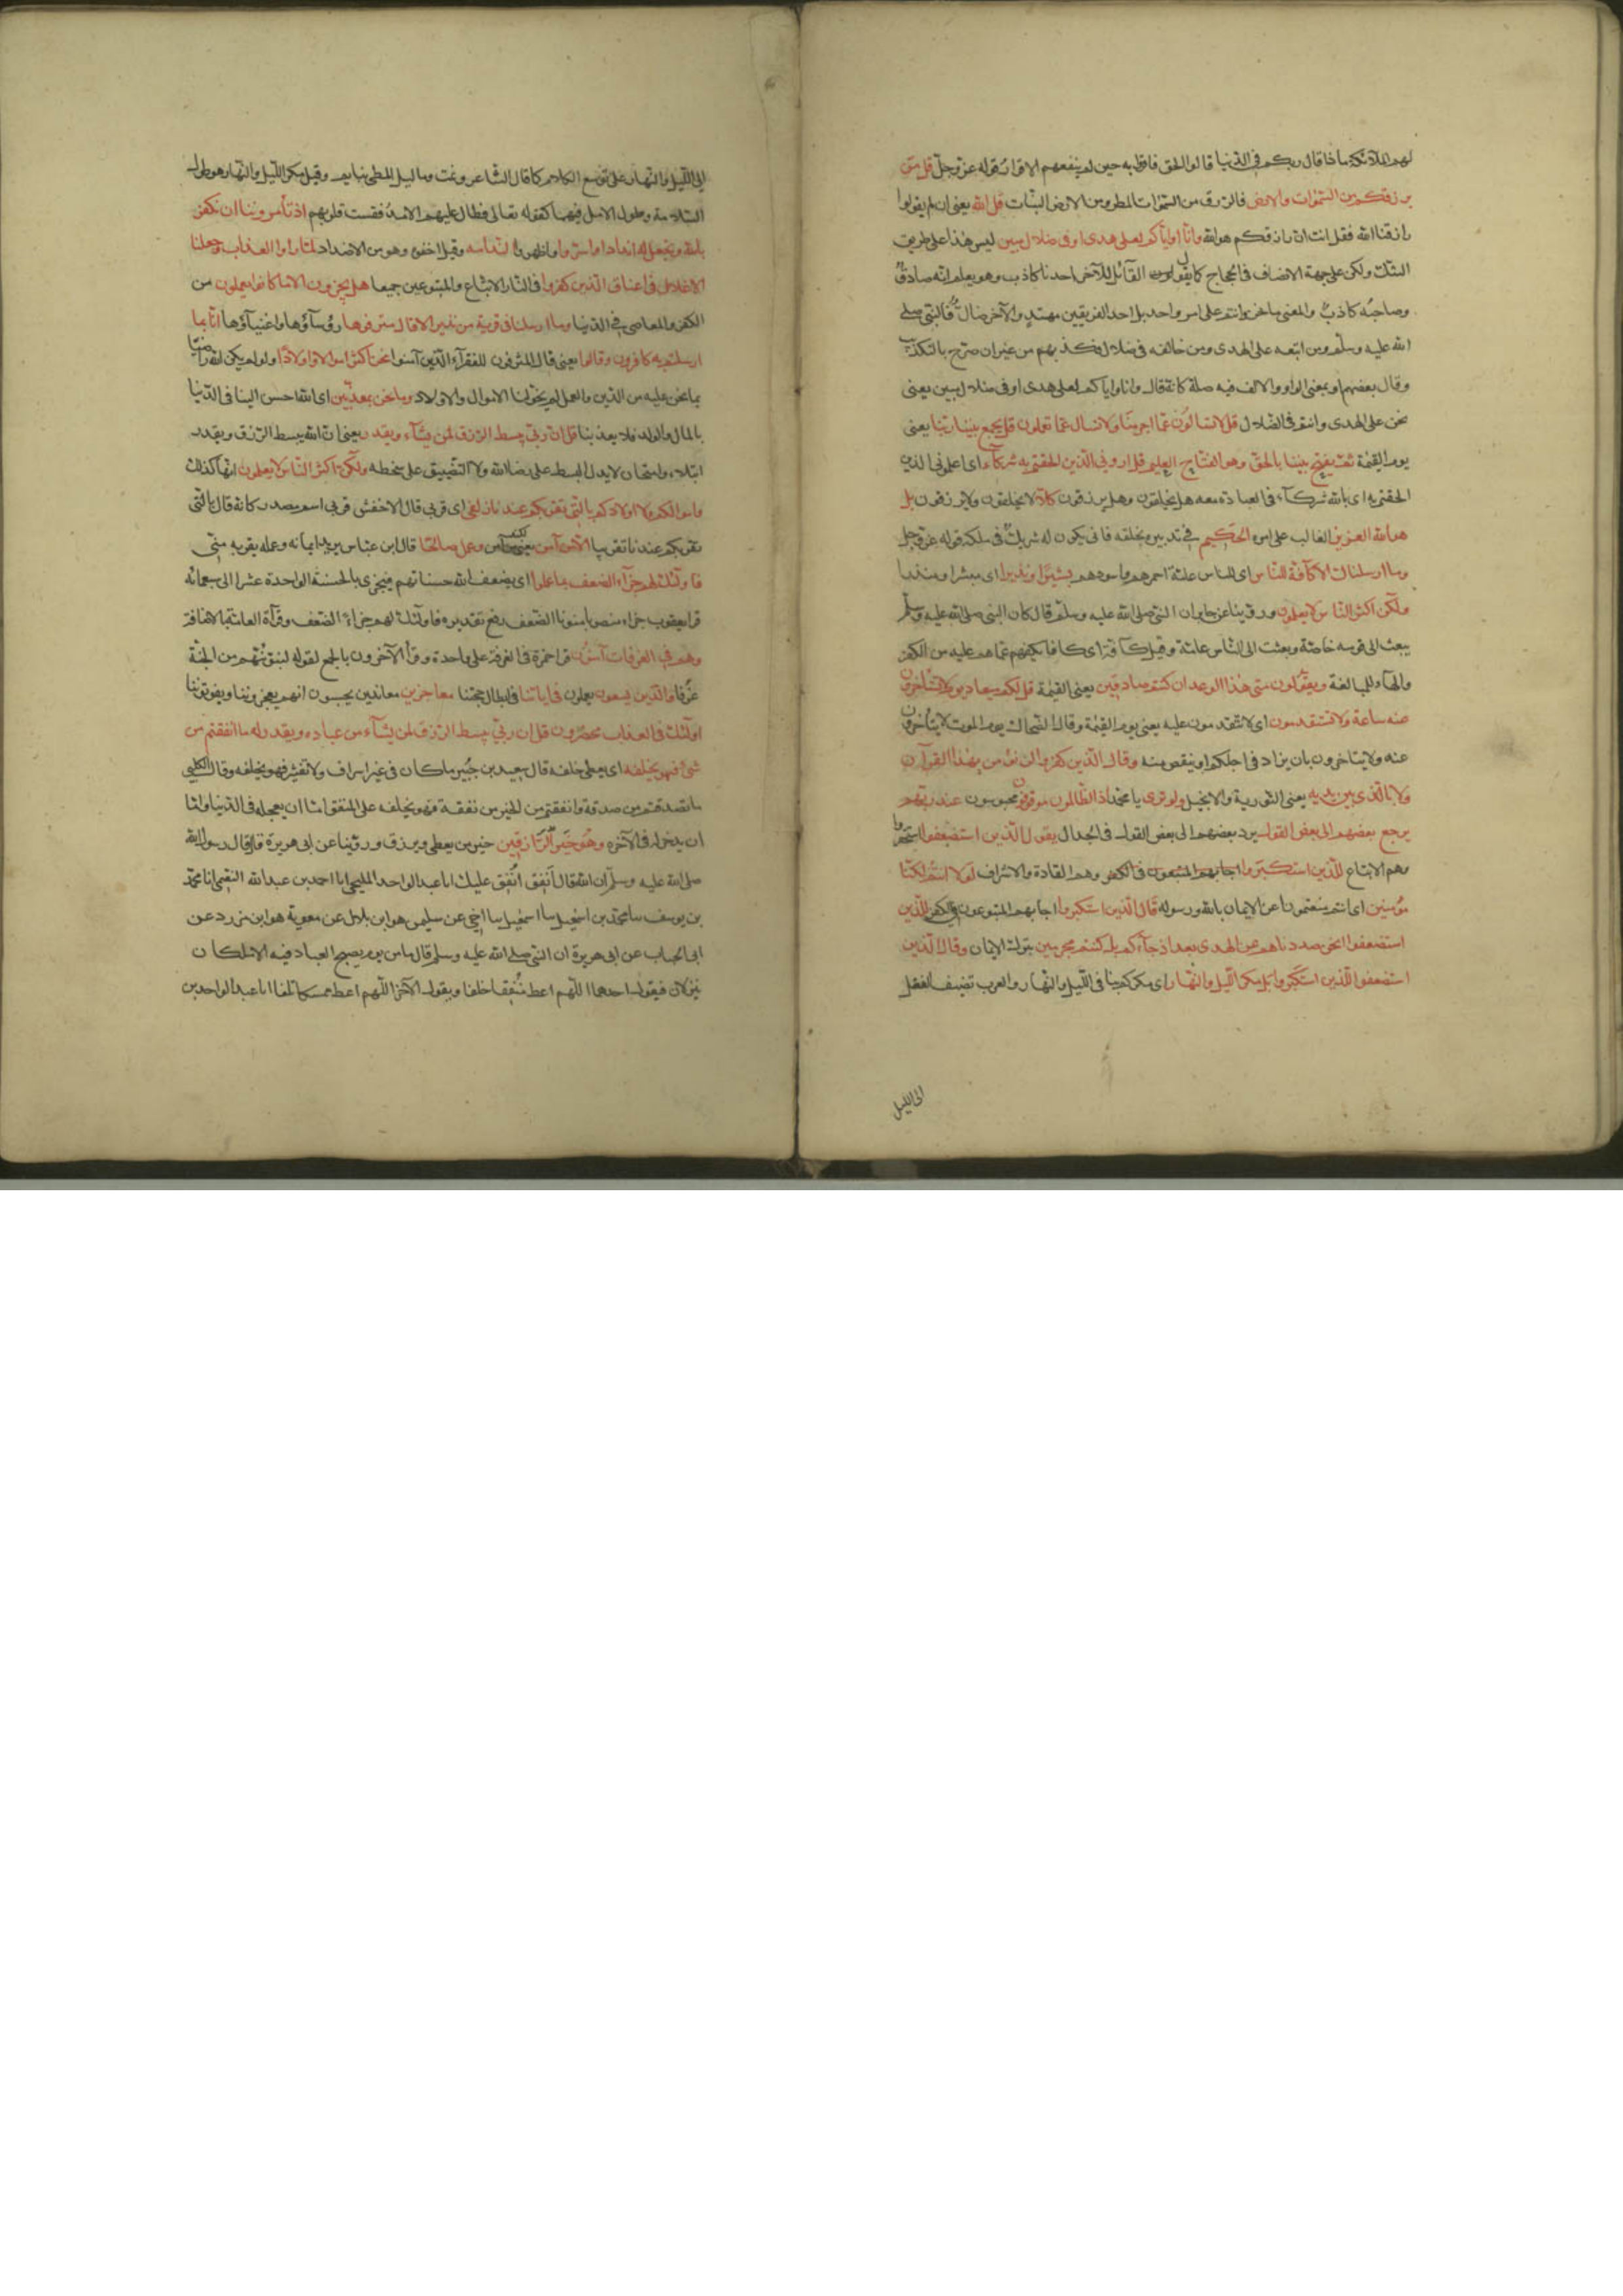 لهم الملائكة ماذا قال ربكم في الدنيا قالوا الحق فاقروا به حين لم ينفعهم الاقرار قوله عز وجل قل من
يرزقكم من السموات والارض فالرزق من السموات المطر ومن الارض النبات قل الله يعنى ان لم يقولوا
رازقنا الله فقل انت ان رازقكم هو الله وانا او اياكم لعلى هدى او فى ضلال مبين ليس هذا على طريق
الشك ولكن على جهة الانصاف فى الحجاج كما يقول القائل للآخر احدنا كاذب وهو يعلم انه صادق
وصاحبه كاذب والمعنى ما نحن وانتم على امر واحد بل احد الفريقين مهتد والآخر ضال فالنبى صلى
الله عليه وسلم ومن اتبعه على الهدى ومن خالفه فى ضلال فكذبهم من غير ان صرح بالتكذيب
وقال بعضهم او بمعنى الواو والالف فيه صلة كانه قال وانا واياكم لعلى هدى او فى ضلال مبين يعنى
نحن على الهدى وانتم فى الضلال قل لا تسالون عما اجرمنا ولا نسال عما تعملون قل يجمع بيننا ربنا يعنى
يوم القيمة ثم يفتح بيننا بالحق وهو الفتاح العليم قل ارونى الذين الحقتم به شركآء اى اعلمونى الذين
الحقتم به اى بالله شركآء فى العبادة معه هل يخلقون وهل يرزقون كلا لا يخلقون ولا يرزقون بل
هو الله العزيز الغالب على امره الحكيم فى تدبيره لخلقه فانى يكون له شريك فى ملكه قوله عز وجل
وما ارسلناك الا كآفة للناس اى للناس عامة احمرهم واسودهم بشيرا ونذيرا اى مبشرا ومنذرا
ولكن اكثر الناس لا يعلمون وروينا عن جابر ان النبى صلى الله عليه وسلم قال كان النبى صلى الله عليه وسلم
يبعث الى قومه خاصة وبعثت الى الناس عامة وقيل كآفة اى كافا يكفهم عما هم عليه من الكفر
والهآء للمبالغة ويقولون متى هذا الوعد ان كنتم صادقين يعنى القيمة قل لكم ميعاد يوم لا تستاخرون
عنه ساعة ولا تستقدمون اى لا تتقدمون عليه يعنى يوم القيمة وقال الضحاك يوم الموت لا يتأخرون
عنه ولا يتاخرون بان يزاد فى اجلكم او ينقص منه وقال الذين كفروا لن نؤمن بهذا القرآن
ولا بالذى بين يديه يعنى التورية والانجيل ولو ترى يا محمد اذ الظالمون موقوفون محبوسون عند ربهم
يرجع بعضهم الى بعض القول يرد بعضهم الى بعض القول فى الجدال يقول الذين استضعفوا استحقروا
وهم الاتباع للذين استكبروا اجابهم المتبعون فى الكفر وهم القادة والاشراف لولا انتم لكنا
مؤمنين اى انتم منعتمونا عن الايمان بالله ورسوله قال الذين استكبروا اجابهم المتبوعون فى الكفر للذين
استضعفوا انحن صددناهم عن الهدى بعد اذ جآءكم بل كنتم مجرمين بترك الايمان وقال الذين
استضعفوا للذين استكبروا بل مكر الليل والنهار اى مكركم بنا فى الليل والنهار والعرب تضيف الفعل
الى الليل
الى الليل والنهار على توسع الكلام كما قال الشاعر ونمت وما ليل المطى بنايم وقيل مكر الليل والنهار هو طول
السلامة وطول الامل فيهما كقوله تعالى فطال عليهم الامد فقست قلوبهم اذ تأمروننا ان نكفر
بالله ونجعل له اندادا واسروا واظهروا الندامة وقيل اخفوا وهو من الاضداد لما راوا العذاب وجعلنا
الاغلال فى اعناق الذين كفروا فى النار الاتباع والمتبوعين جميعا هل يجزون الا ما كانوا يعملون من
الكفر والمعاصى فى الدنيا وما ارسلنا فى قرية من نذير الا قال مترفوها رؤسآؤها واغنيآؤها انا بما
ارسلتم به كافرون وقالوا يعنى قال المترفون للفقرآء الذين آمنوا نحن اكثر اموالا واولادا ولو لم يكن الله راضيا
بما نحن عليه من الدين والعمل لم يخولنا الاموال والاولاد وما نحن بمعذبين اى الله احسن الينا فى الدنيا
بالمال والولد فلا يعذبنا قل ان ربى يبسط الرزق لمن يشآء ويقدر يعنى ان الله يبسط الرزق ويقدر
ابتلاء وامتحان لا يدل البسط على رضا الله ولا التضييق على سخطه ولكن اكثر الناس لا يعلمون انها كذلك
واموالكم ولا اولادكم بالتى تقربكم عندنا زلفى اى قربى قال الاخفش قربى اسم مصدر كانه قال بالتى
تقربكم عندنا تقريبا الا من آمن يعنى لكن من آمن وعمل صالحا قال ابن عباس يريد ايمانه وعمله يقربه منى
فاولئك لهم جزآء الضعف بما عملوا اى يضعف الله حسناتهم فيجزى بالحسنة الواحدة عشرا الى سبعمائه
قرا يعقوب جزاء منصوبا منونا الضعف رفع تقديره فاولئك لهم جزاء الضعف وقرأة العامة بالاضافة
وهم فى الغرفات آمنون قرا حمزة فى الغرفة على واحدة وقرأ الآخرون بالجمع لقوله لنبوئنهم من الجنة
غرفا والذين يسعون يعملون فى اياتنا فى ابطال حجتنا معاجزين معاندين يحسبون انهم يعجزوننا ويفوتوننا
اولئك فى العذاب محضرون قل ان ربى يبسط الرزق لمن يشآء من عباده ويقدر له ما انفقتم من
شئ فهو يخلفه اى يعطى خلفه قال سعيد بن جبير ما كان فى غير اسراف ولا تقتير فهو يخلفه وقال الكلبى
ما تصدقتم من صدقة وانفقتم من الخير من نفقة فهو يخلفه على المنفق اما ان يعجله فى الدنيا واما
ان يدخر له فى الآخرة وهو خير الرازقين خير من يعطى ويرزق وروينا عن ابى هريرة قال قال رسول الله
صلى الله عليه وسلم ان الله قال انفق انفق عليك انا عبد الواحد المليحى انا احمد بن عبد الله النعيمى انا محمد
بن يوسف نا محمد بن اسمعيل نا اسمعيل نا اخى عن سليمن هو ابن بلال عن معوية هو ابن مزرد عن
ابى الحباب عن ابى هريرة ان النبى صلى الله عليه وسلم قال ما من يوم يصبح العباد فيه الا ملكان
ينزلان فيقول احدهما اللهم اعط منفقا خلفا ويقول الآخر اللهم اعط ممسكا تلفا انا عبد الواحد بن